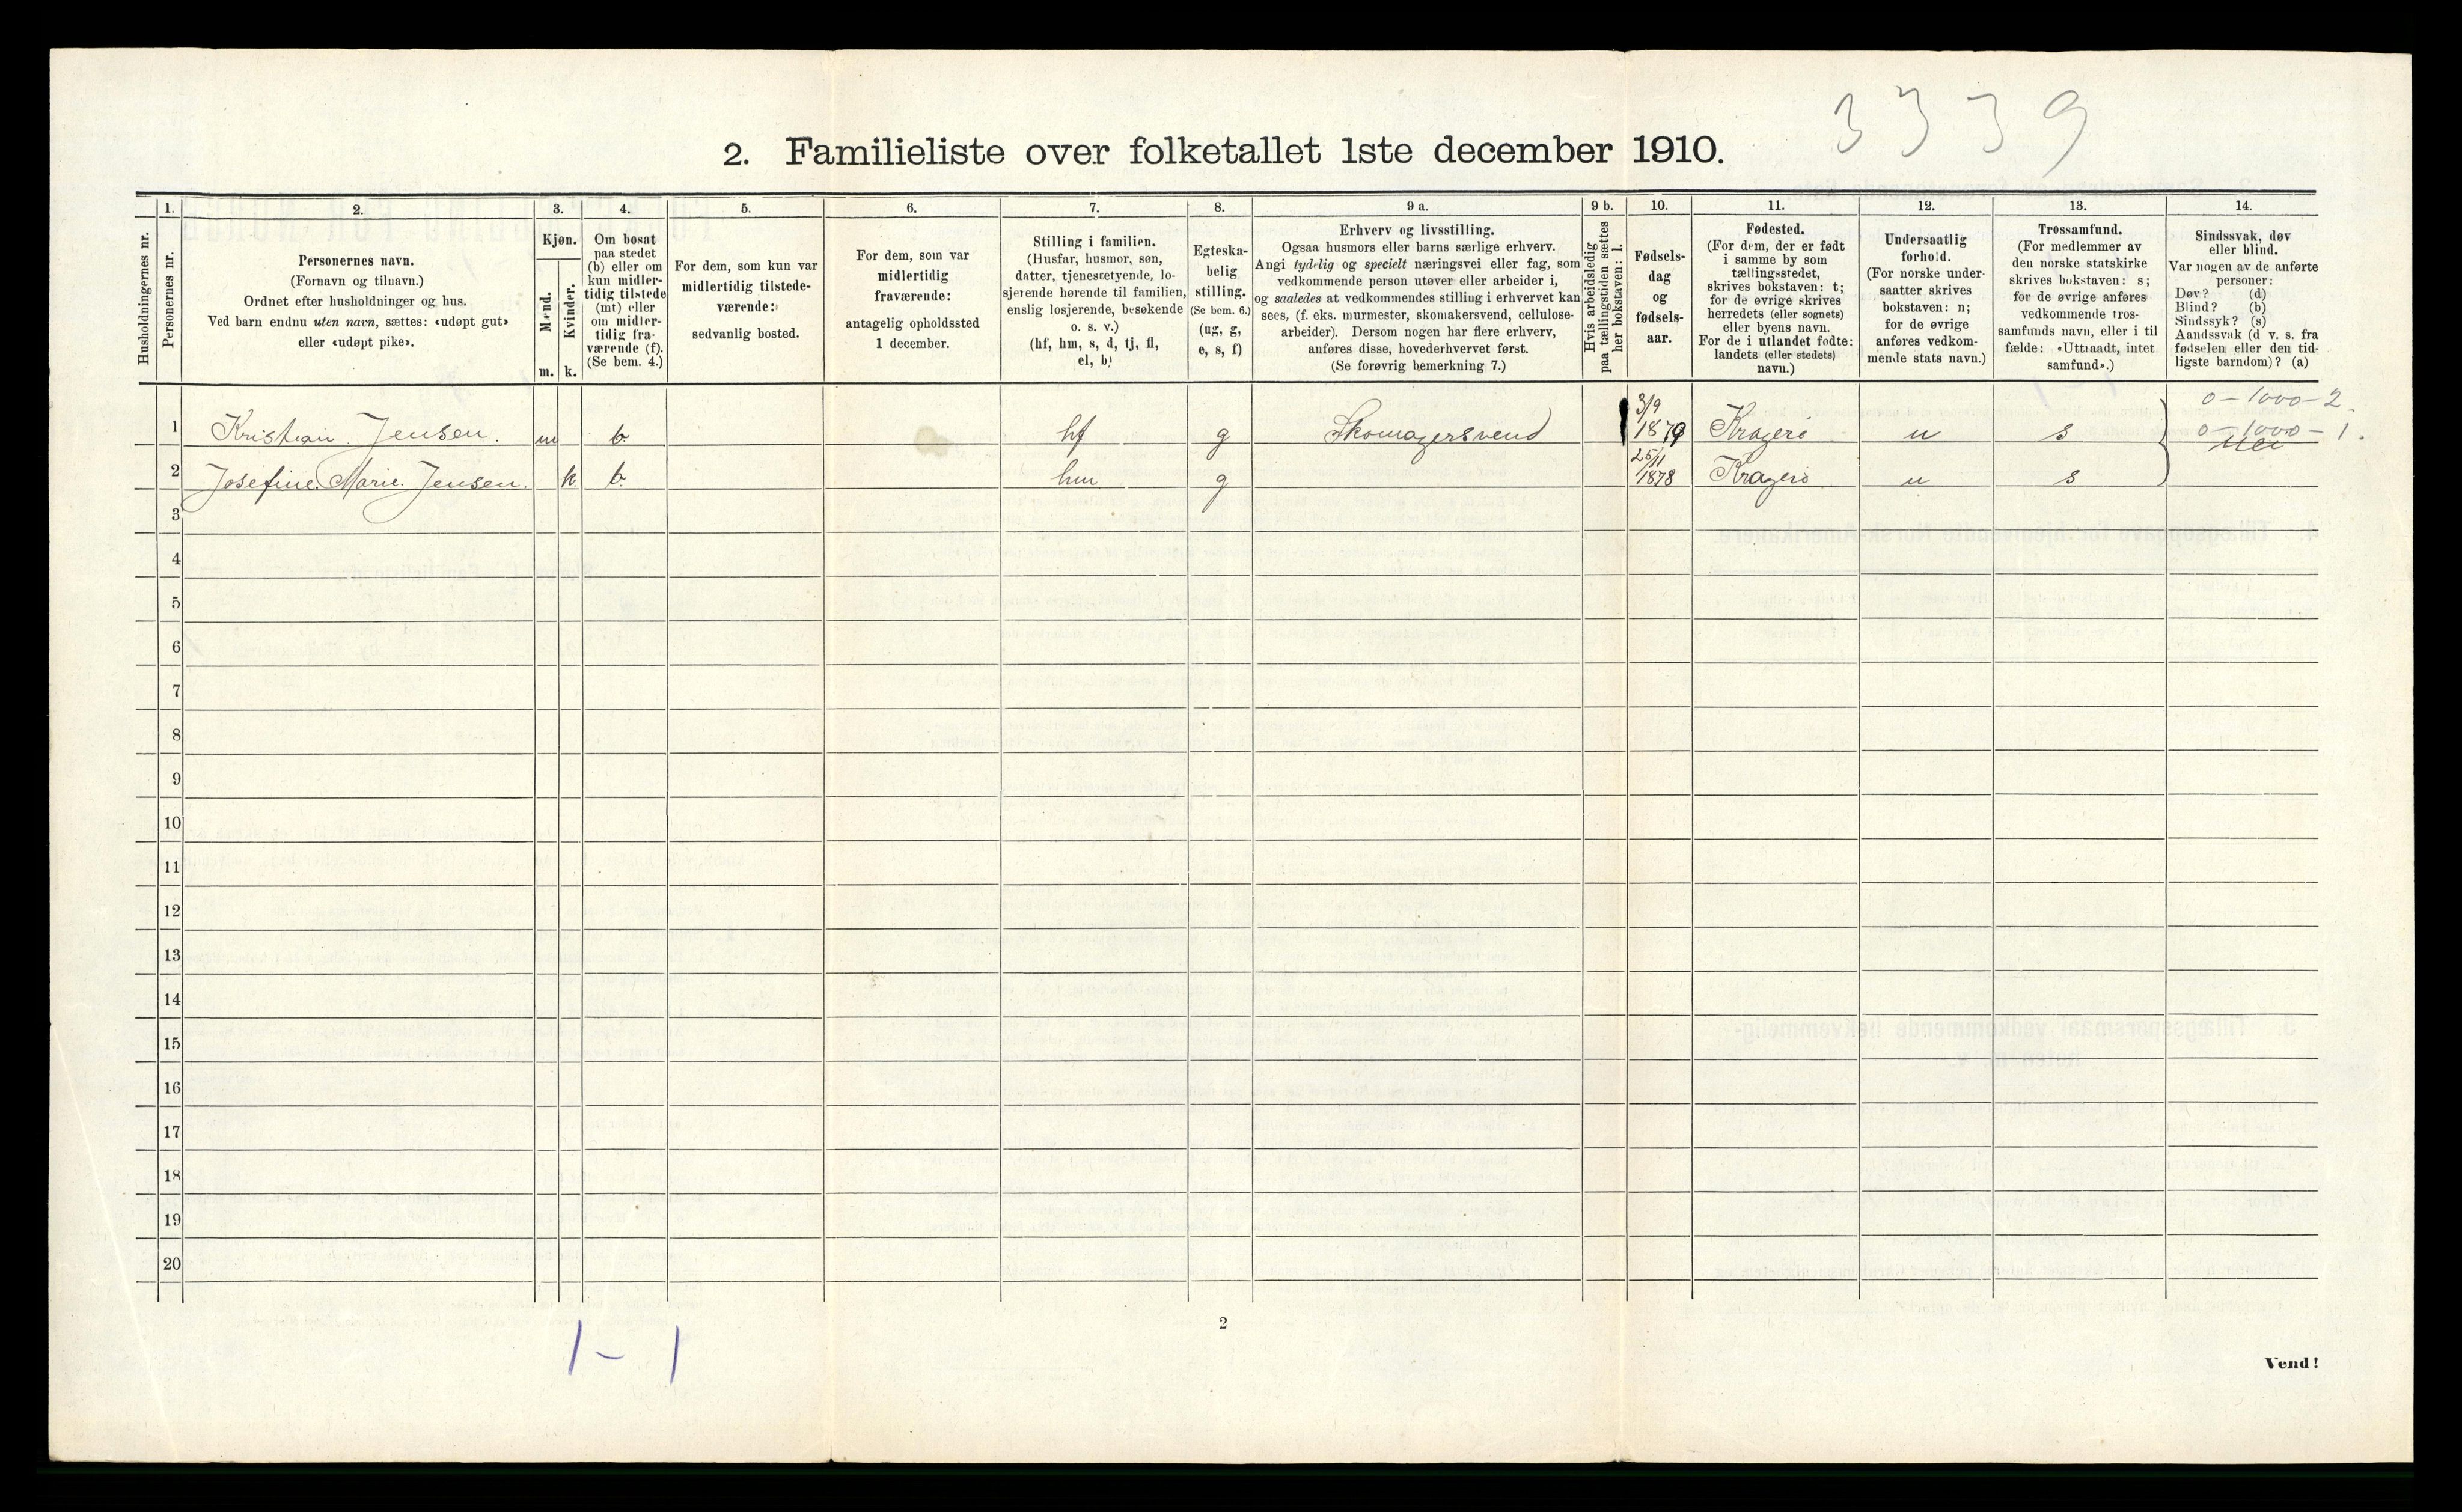 3339
2. Familieliste over folketallet 1ste december 1910.
Husholdningernes nr.
1.
Personernes nr.
2.
Personernes navn.
(Fornavn og tilnavn.)
Ordnet efter husholdninger og hus.
Ved barn endnu uten navn, sættes: «udøpt gut»
eller «udøpt pike».
3.
Kjøn.
Mænd.
m.
Kvinder.
k.
4.
Om bosat
paa stedet
(b) eller om
kun midler-
tidig tilstede
(mt) eller
om midler-
tidig fra-
værende (f).
(Se bem. 4.)
5.
For dem, som kun var
midlertidig tilstede-
værende:
sedvanlig bosted.
6.
For dem, som var
midlertidig
fraværende:
antagelig opholdssted
1 december.
7.
Stilling i familien.
(Husfar, husmor, søn,
datter, tjenestetyende, lo-
sjerende hørende til familien,
enslig losjerende, besøkende
o. s. v.)
(hf, hm, s, d, tj, fl,
el, b)
8.
Egteska-
belig
stilling.
(Se bem. 6.)
(ug, g,
e, s, f)
9 a.
Erhverv og livsstilling.
Ogsaa husmors eller barns særlige erhverv.
Angi tydelig og specielt næringsvei eller fag, som
vedkommende person utøver eller arbeider i,
og saaledes at vedkommendes stilling i erhvervet kan
sees, (f. eks. murmester, skomakersvend, cellulose-
arbeider). Dersom nogen har flere erhverv,
anføres disse, hovederhvervet først.
(Se forøvrig bemerkning 7.)
9 b.
Hvis arbeidsledig
paa tællingstiden sættes
her bokstaven: l.
10.
Fødsels-
dag
og
fødsels-
aar.
11.
Fødested.
(For dem, der er født
i samme by som
tællingsstedet,
skrives bokstaven: t;
for de øvrige skrives
herredets (eller sognets)
eller byens navn.
For de i utlandet fødte:
landets (eller stedets)
navn.)
12.
Undersaatlig
forhold.
(For norske under-
saatter skrives
bokstaven: n;
for de øvrige
anføres vedkom-
mende stats navn.)
13.
Trossamfund.
(For medlemmer av
den norske statskirke
skrives bokstaven: s;
for de øvrige anføres
vedkommende tros-
samfunds navn, eller i til
fælde: «Uttraadt, intet
samfund».)
14.
Sindssvak, døv
eller blind.
Var nogen av de anførte
personer:
Døv? (d)
Blind? (b)
Sindssyk? (s)
Aandssvak (d v. s. fra
fødselen eller den tid-
ligste barndom)? (a)
0 – 1000 – 2.
1 Kristian Jensen. m b hf g Skomagersvend 3/9 1879 Kragerö n s 0 – 1000 – 1.
nei
2 Josefine Marie Jensen. k b hm g 25/11 1878 Kragerö n s
3
4
5
6
7
8
9
10
11
12
13
14
15
16
17
18
19
20
2
1 – 1
Vend!